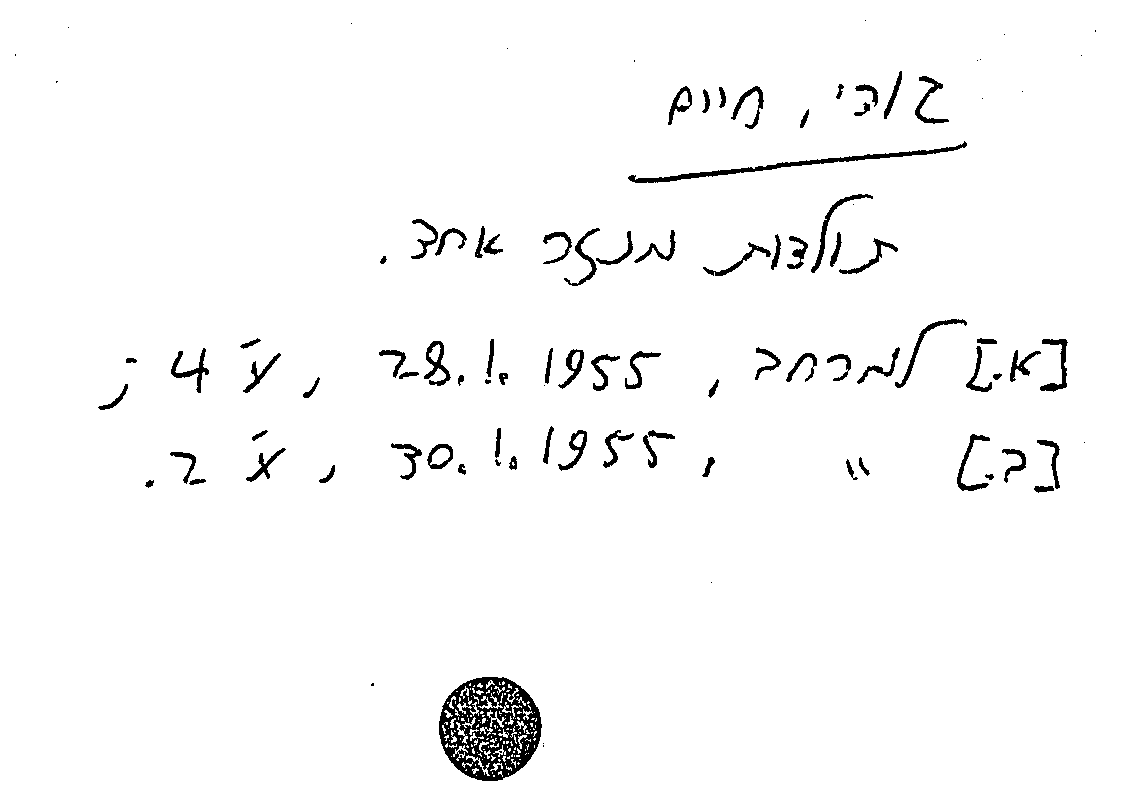 גורי, חיים
תולדות מנזר אחד.
[א.] למרחב, 28.1.1955, ע' 4 ;
[ב.] " , 30.1.1955, ע' 2.